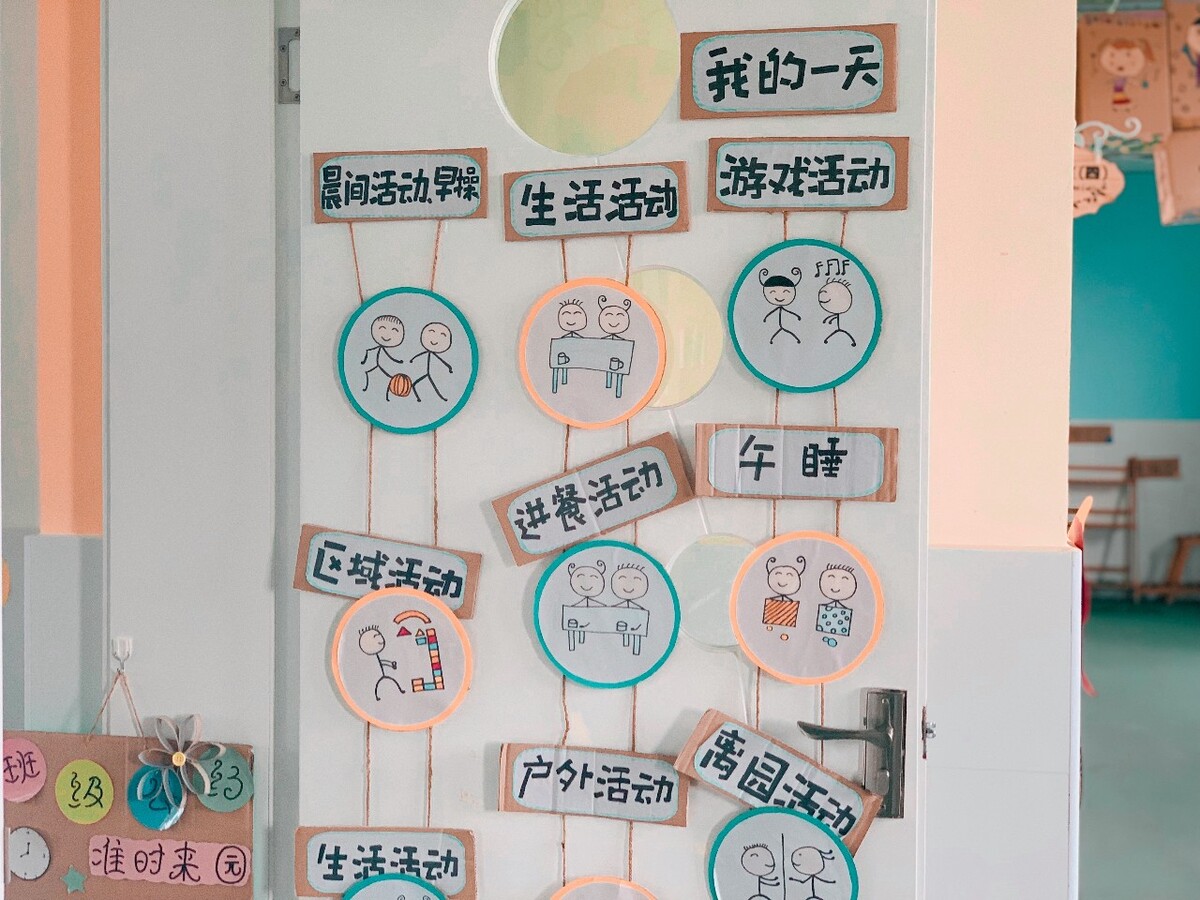 我的一天
晨间活动、早操
生活活动
游戏活动
进餐活动
午睡
区域活动
户外活动
离园活动
生活活动
班
级
准时来园